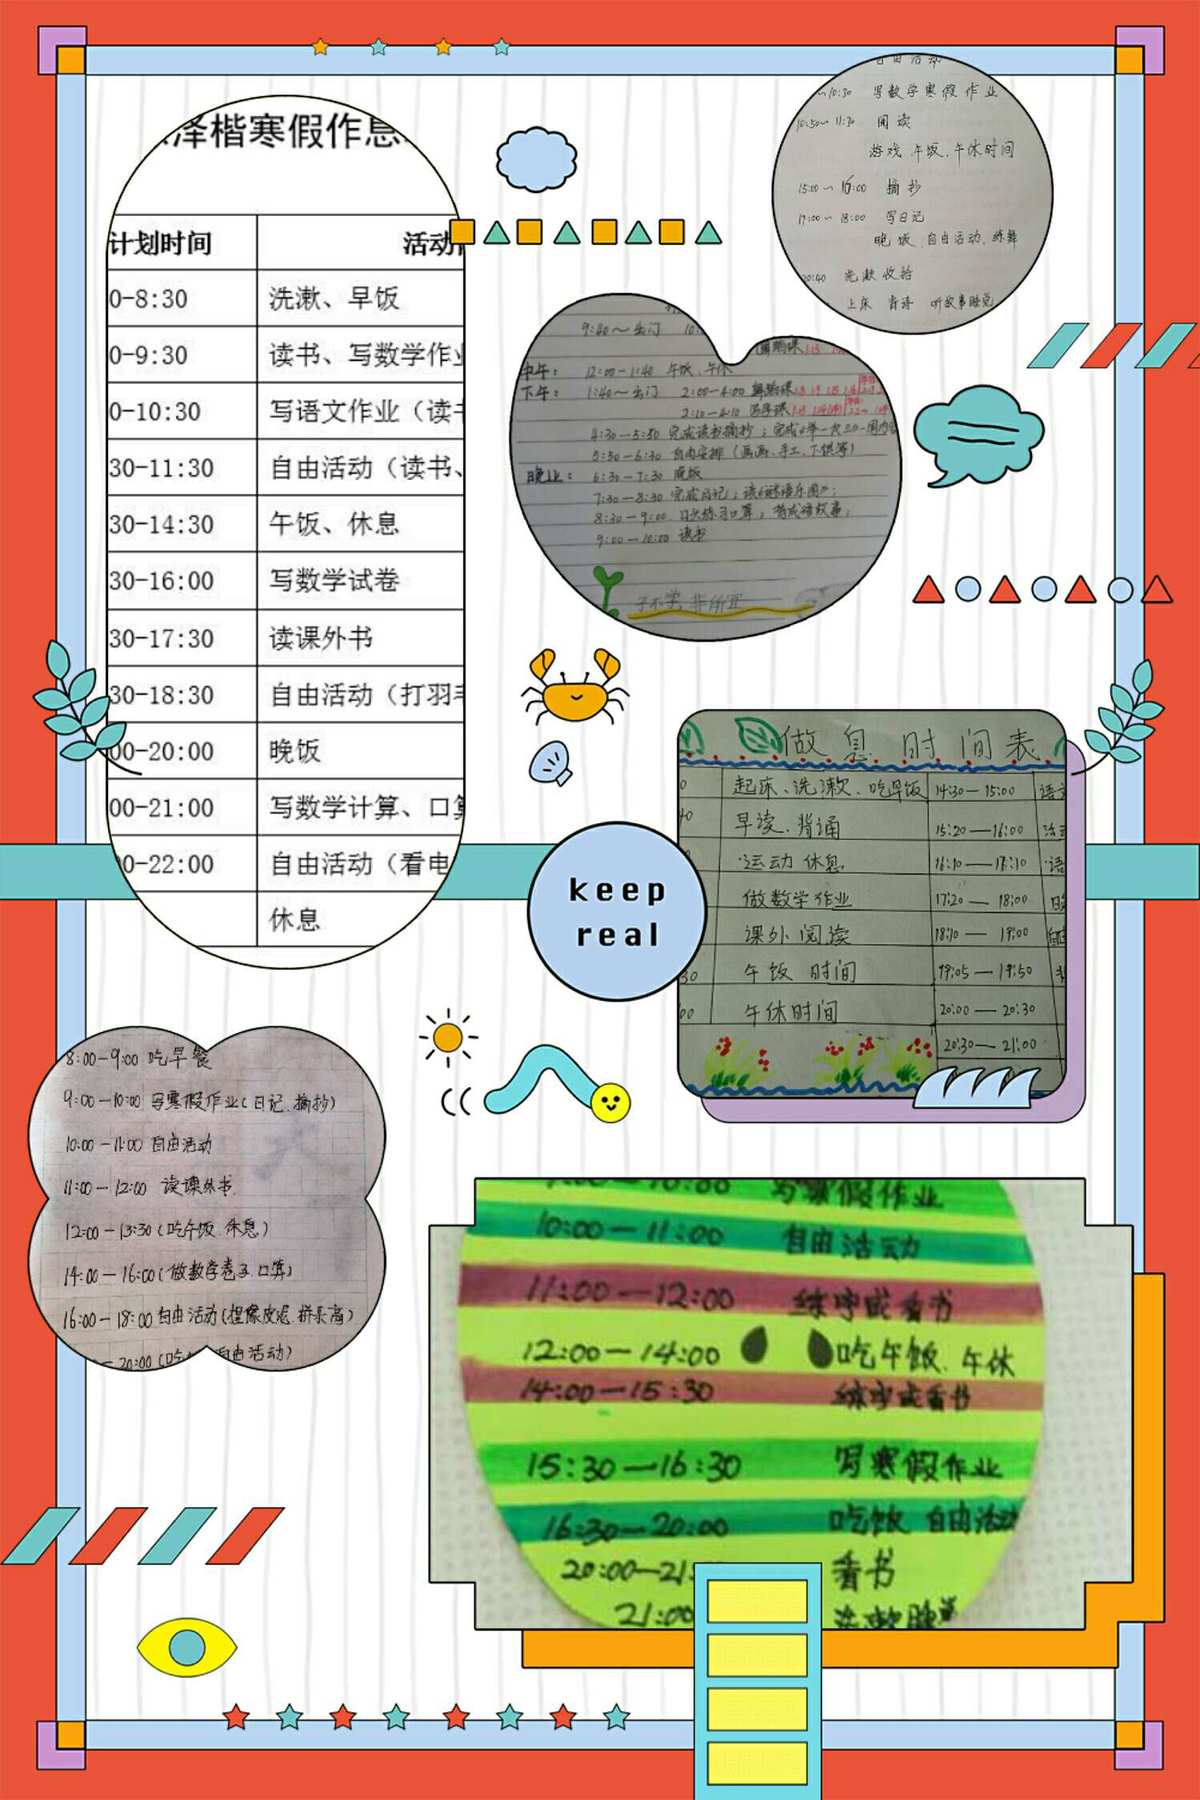 泽楷寒假作息
计划时间 活动
0-8:30 洗漱、早饭
0-9:30 读书、写数学作业
0-10:30 写语文作业（读书
30-11:30 自由活动（读书、
30-14:30 午饭、休息
30-16:00 写数学试卷
30-17:30 读课外书
30-18:30 自由活动（打羽毛
00-20:00 晚饭
00-21:00 写数学计算、口算
00-22:00 自由活动（看电
休息
自由活动
~10:30 写数学寒假作业
10:50~11:30 阅读
游戏、午饭、午休时间
15:00~16:00 摘抄
17:00~18:00 写日记
晚饭、自由活动、练舞
20:40 洗漱收拾
上床 背诗 听故事睡觉
9:40~出门 10:
中午: 12:00-1:40 午饭、午休
下午: 1:40~出门 2:00-4:00
2:10-4:10 写字课
4:30-5:50 完成读书摘抄；完成
5:50-6:30 自由安排（画画、手工、下棋等）
晚上: 6:30-7:30 晚饭
7:30-8:30 完成日记；读
8:30-9:00 口头练习口算；
9:00-10:00 读书
子不学，非所宜
做息时间表
起床、洗漱、吃早饭 14:30-15:00 语文
早读、背诵 15:20-16:00
运动 休息 16:10-17:10 语
做数学作业 17:20-18:00
课外阅读 18:10-19:00
午饭时间 19:05-19:50
午休时间 20:00-20:30
20:30-21:00
keep
real
8:00-9:00 吃早餐
9:00-10:00 写寒假作业(日记、摘抄)
10:00-11:00 自由活动
11:00-12:00 读课外书
12:00-13:30(吃午饭、休息)
14:00-16:00(做数学卷子、口算)
16:00-18:00 自由活动(捏橡皮泥、拼乐高)
-20:00(吃 自由活动)
写寒假作业
10:00-11:00 自由活动
11:00-12:00 练字或看书
12:00-14:00 吃午饭、午休
14:00-15:30 练字或看书
15:30-16:30 写寒假作业
16:30-20:00 吃饭 自由活动
20:00-21: 看书
21:00 洗漱睡